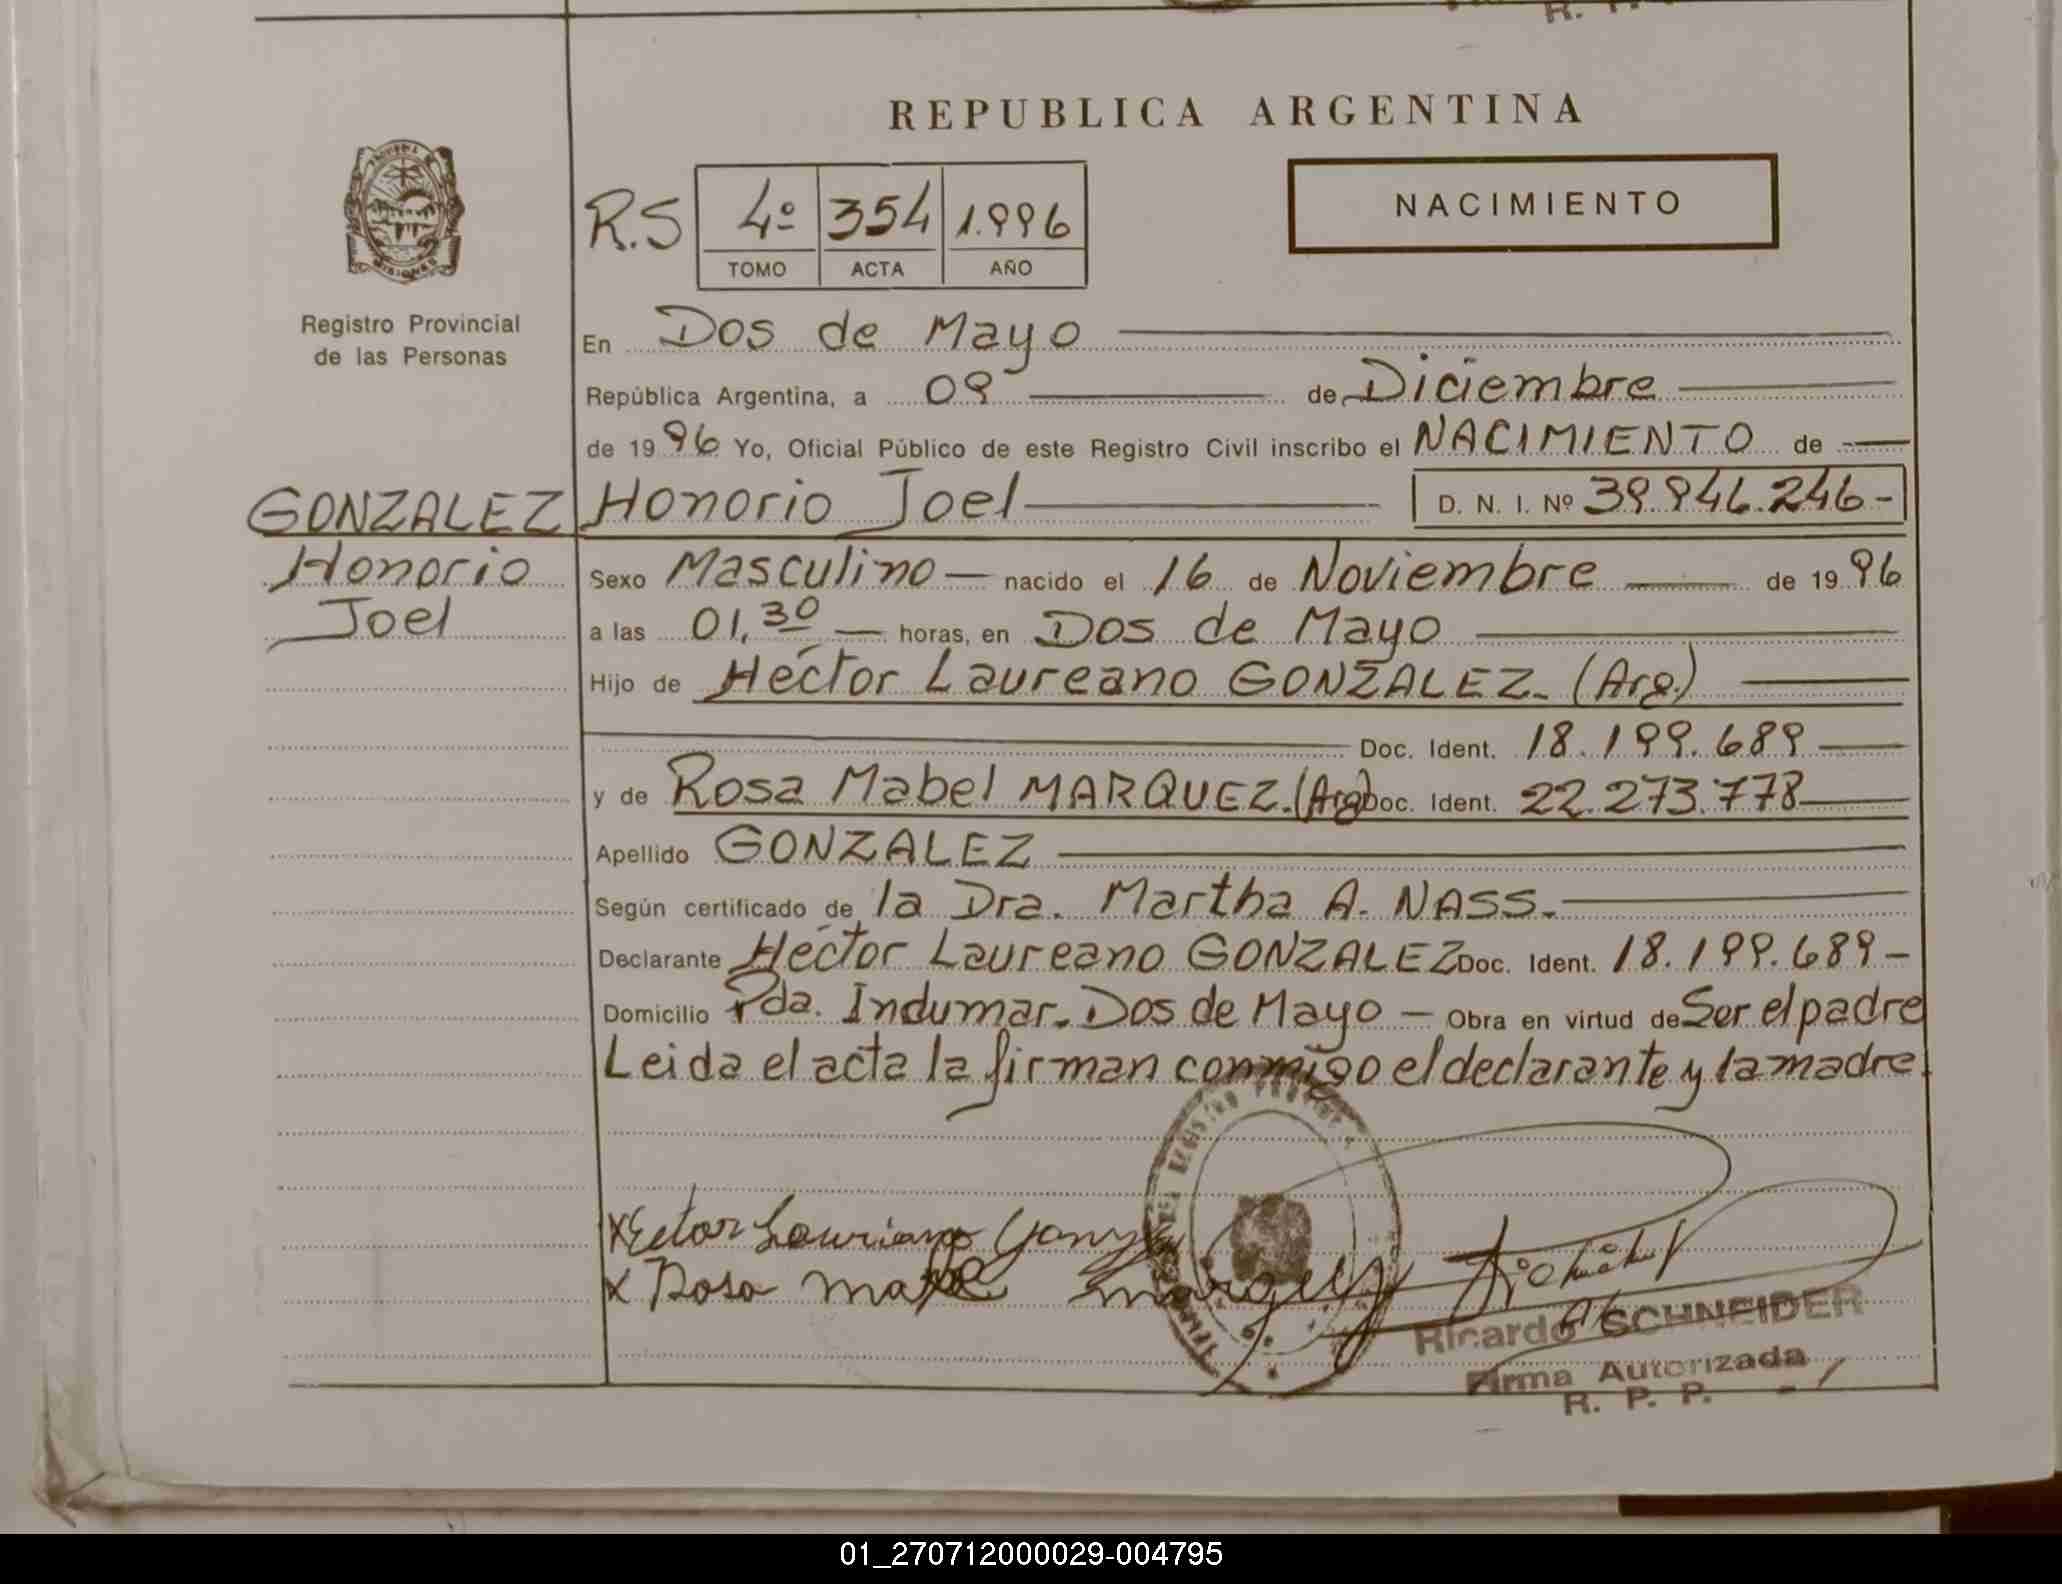 REPUBLICA ARGENTINA
NACIMIENTO
R.S 4º 354 1.996
TOMO ACTA AÑO
Registro Provincial
de las Personas
En Dos de Mayo
República Argentina, a 09 de Diciembre
de 1996 Yo, Oficial Público de este Registro Civil inscribo el NACIMIENTO de
GONZALEZ Honorio Joel D. N. I. Nº 39.946.246-
Honorio
Joel
Sexo Masculino — nacido el 16 de Noviembre de 1996
a las 01,30 — horas, en Dos de Mayo
Hijo de Héctor Laureano GONZALEZ. (Arg.)
Doc. Ident. 18.199.689
y de Rosa Mabel MARQUEZ.(Arg) Doc. Ident. 22.273.778
Apellido GONZALEZ
Según certificado de la Dra. Martha A. NASS.
Declarante Héctor Laureano GONZALEZ Doc. Ident. 18.199.689-
Domicilio Pda. Indumar. Dos de Mayo — Obra en virtud de Ser el padre
Leida el acta la firman conmigo el declarante y la madre.
x Rosa
Ricardo SCHNEIDER
Firma Autorizada
R. P. P.
01_270712000029-004795